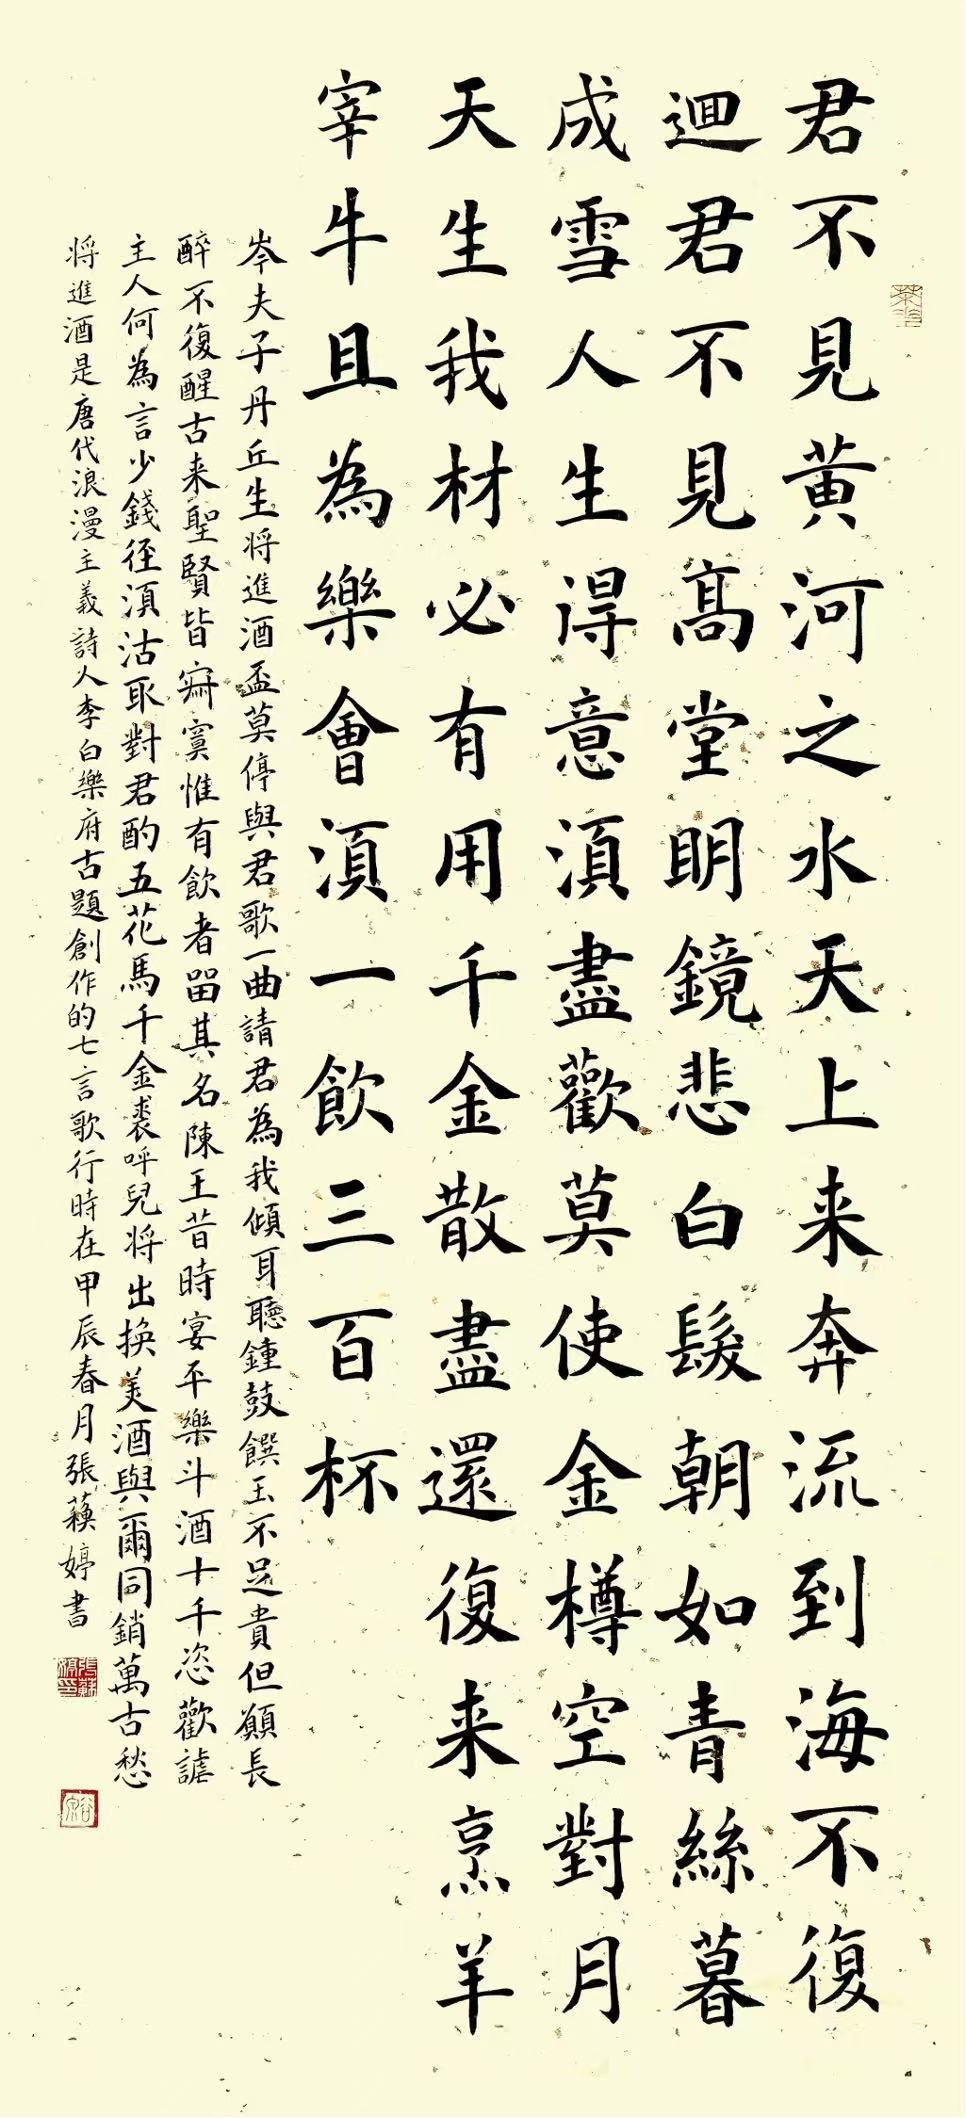 君不見黄河之水天上来奔流到海不復
迴君不見高堂明鏡悲白髮朝如青絲暮
成雪人生得意湏盡歡莫使金樽空對月
天生我材必有用千金散盡還復来烹羊
宰牛且為樂會湏一飲三百杯
岑夫子丹丘生将進酒盃莫停與君歌一曲請君為我傾耳聽鍾鼓饌玉不足貴但願長
醉不復醒古来聖賢皆寂寞惟有飲者留其名陳王昔時宴平樂斗酒十千恣歡謔
主人何為言少錢径湏沽取對君酌五花馬千金裘呼兒将出换美酒與爾同銷萬古愁
将進酒是唐代浪漫主義詩人李白樂府古題創作的七言歌行時在甲辰春月張蕻婷書